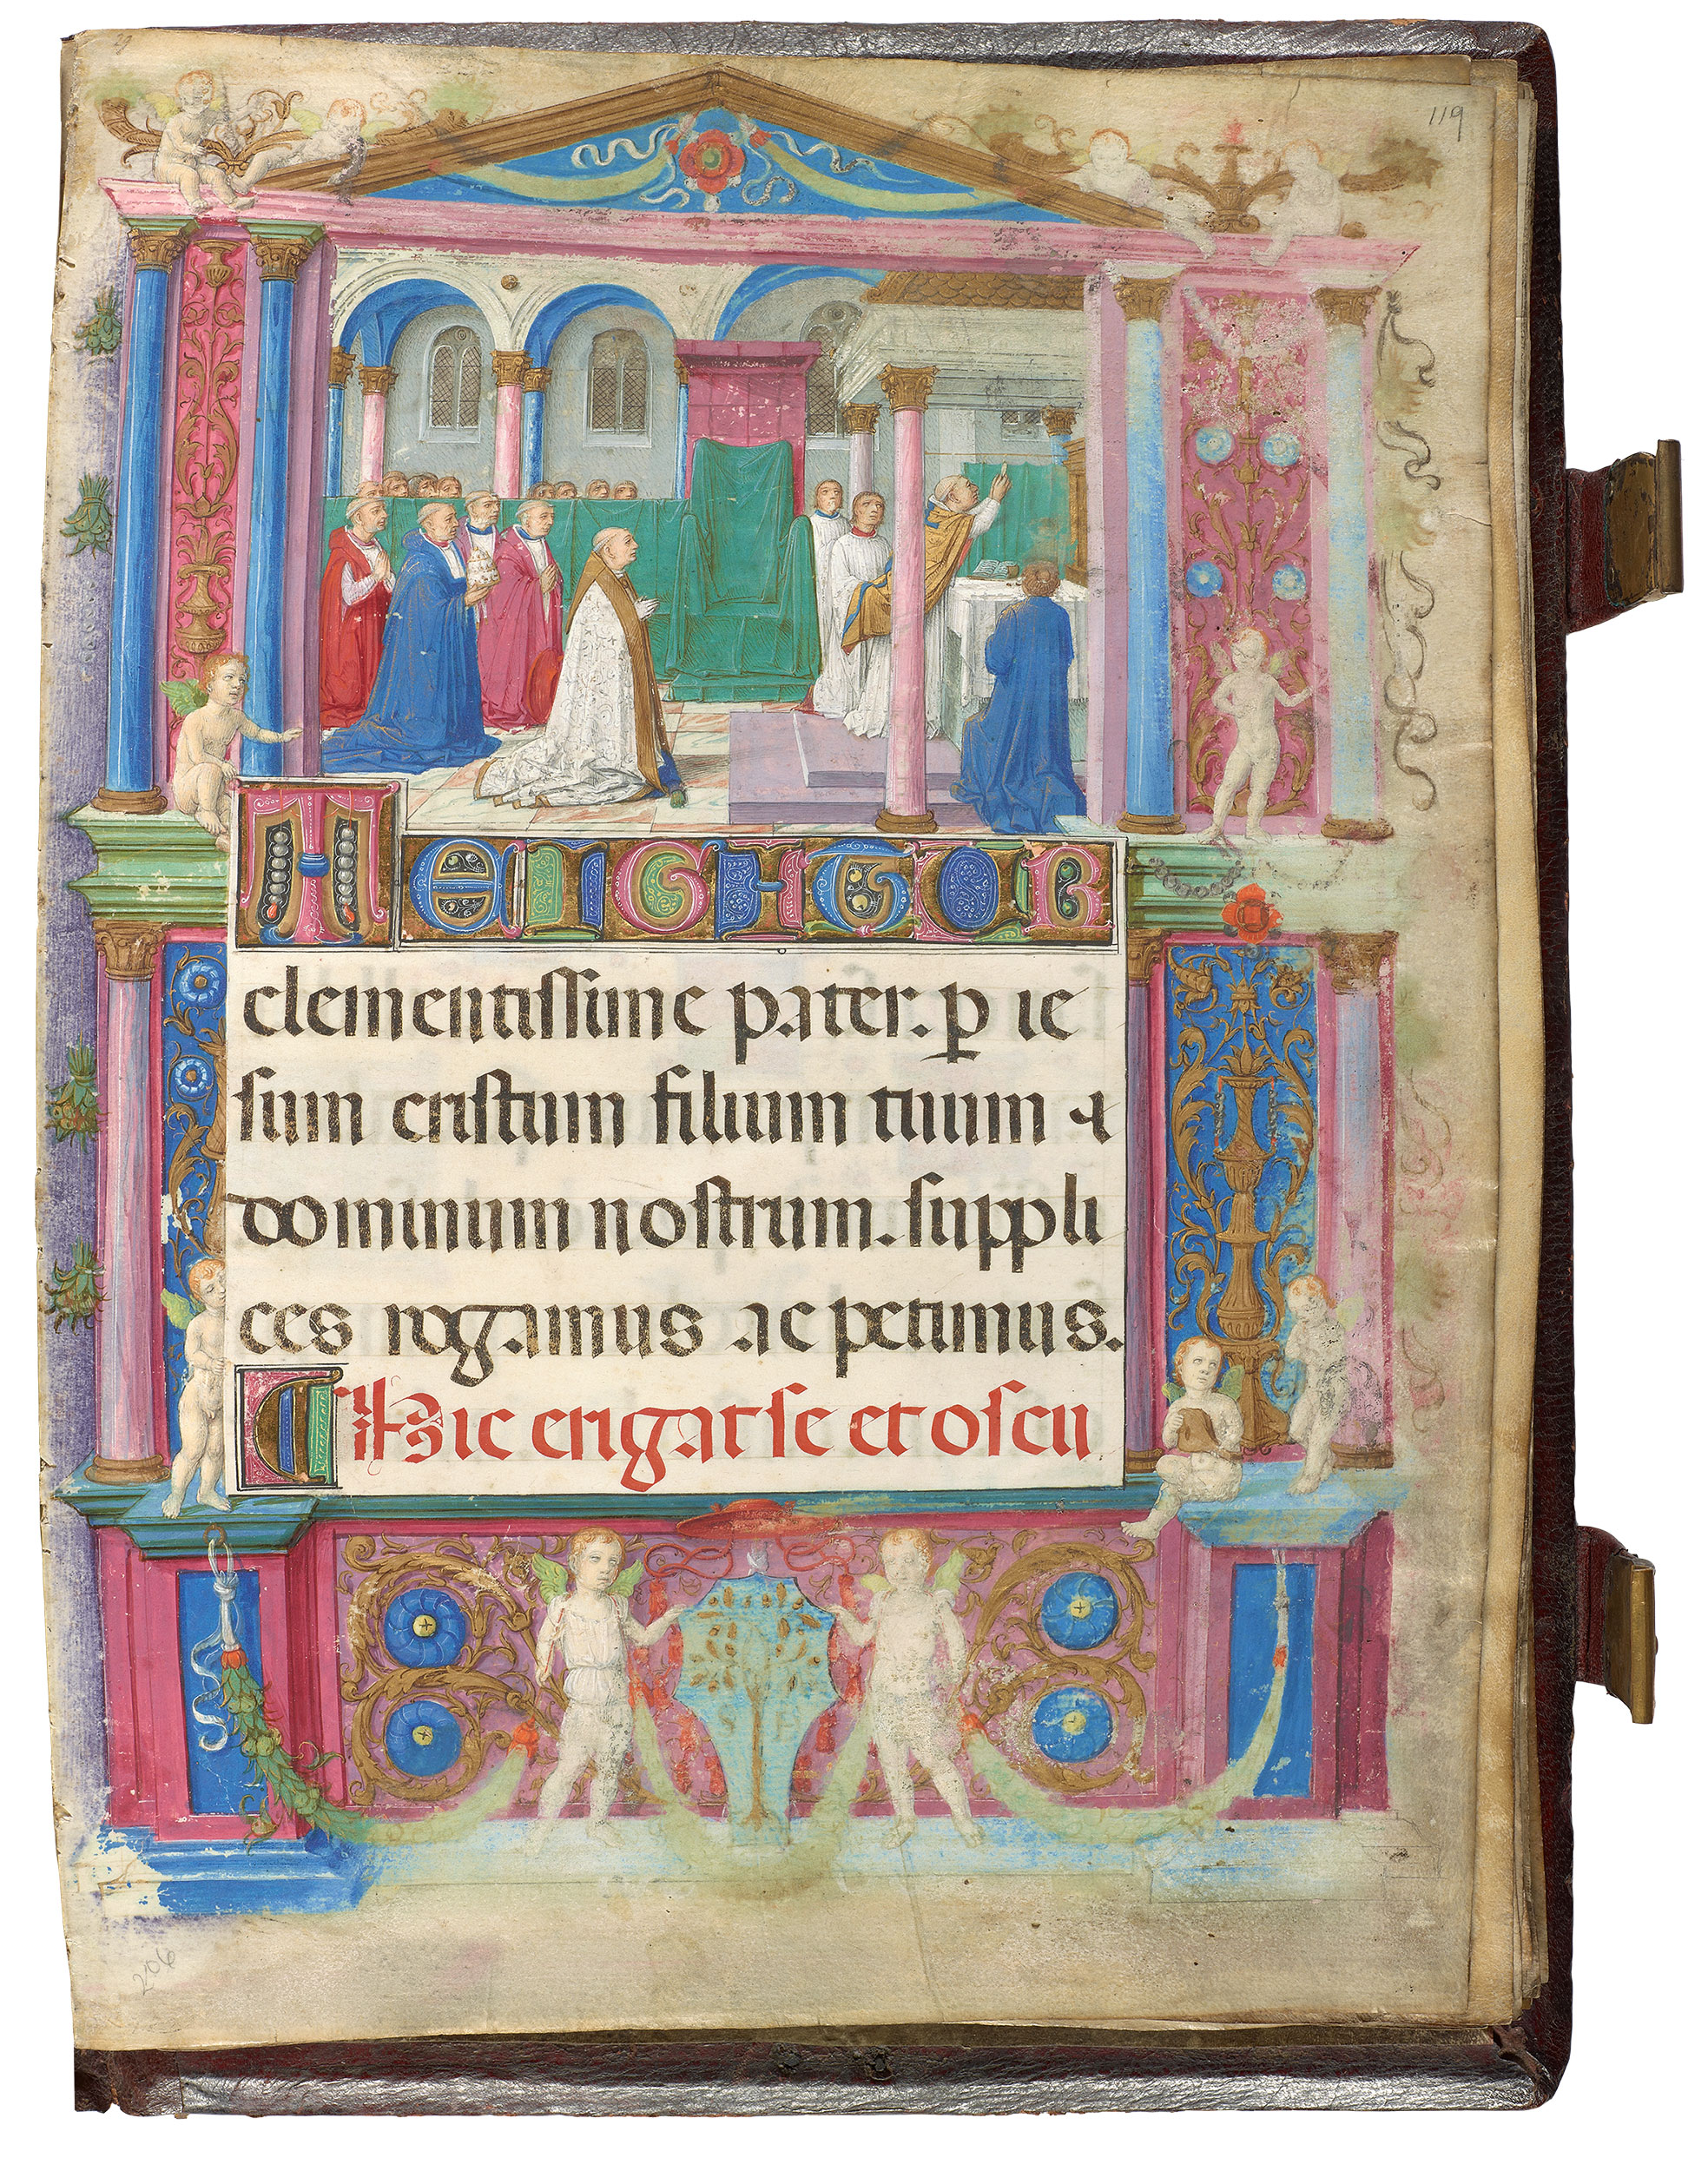 29
119
TEIGITUR
clementissime pater. ꝑ ie
sum cristum filium tuum &
dominum nostrum. suppli
ces rogamus ac petimus.
Hic erigat se et oscu
206